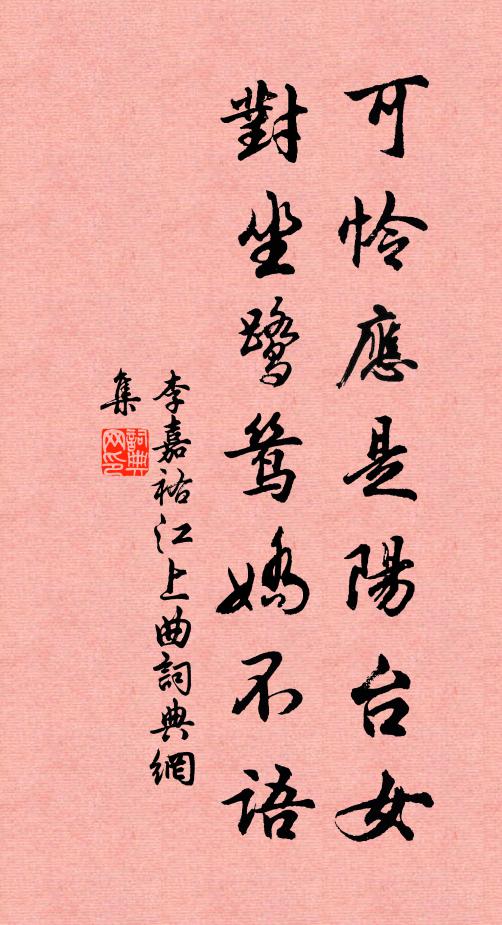 可怜應是陽台女
對坐鷺鶿嬌不語
李嘉祐江上曲詞典網
集
詞典網印